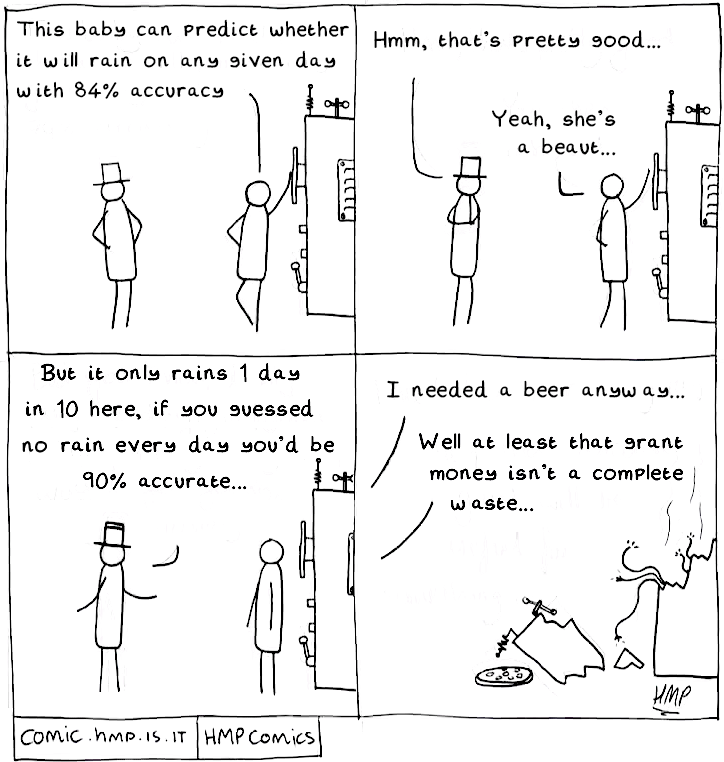 This baby can predict whether
it will rain on any given day
with 84% accuracy
Hmm, that's pretty good...
Yeah, she's
a beaut...
But it only rains 1 day
in 10 here, if you guessed
no rain every day you'd be
90% accurate...
I needed a beer anyway...
Well at least that grant
money isn't a complete
waste...
HMP
comic.hmp.is.it
HMP comics